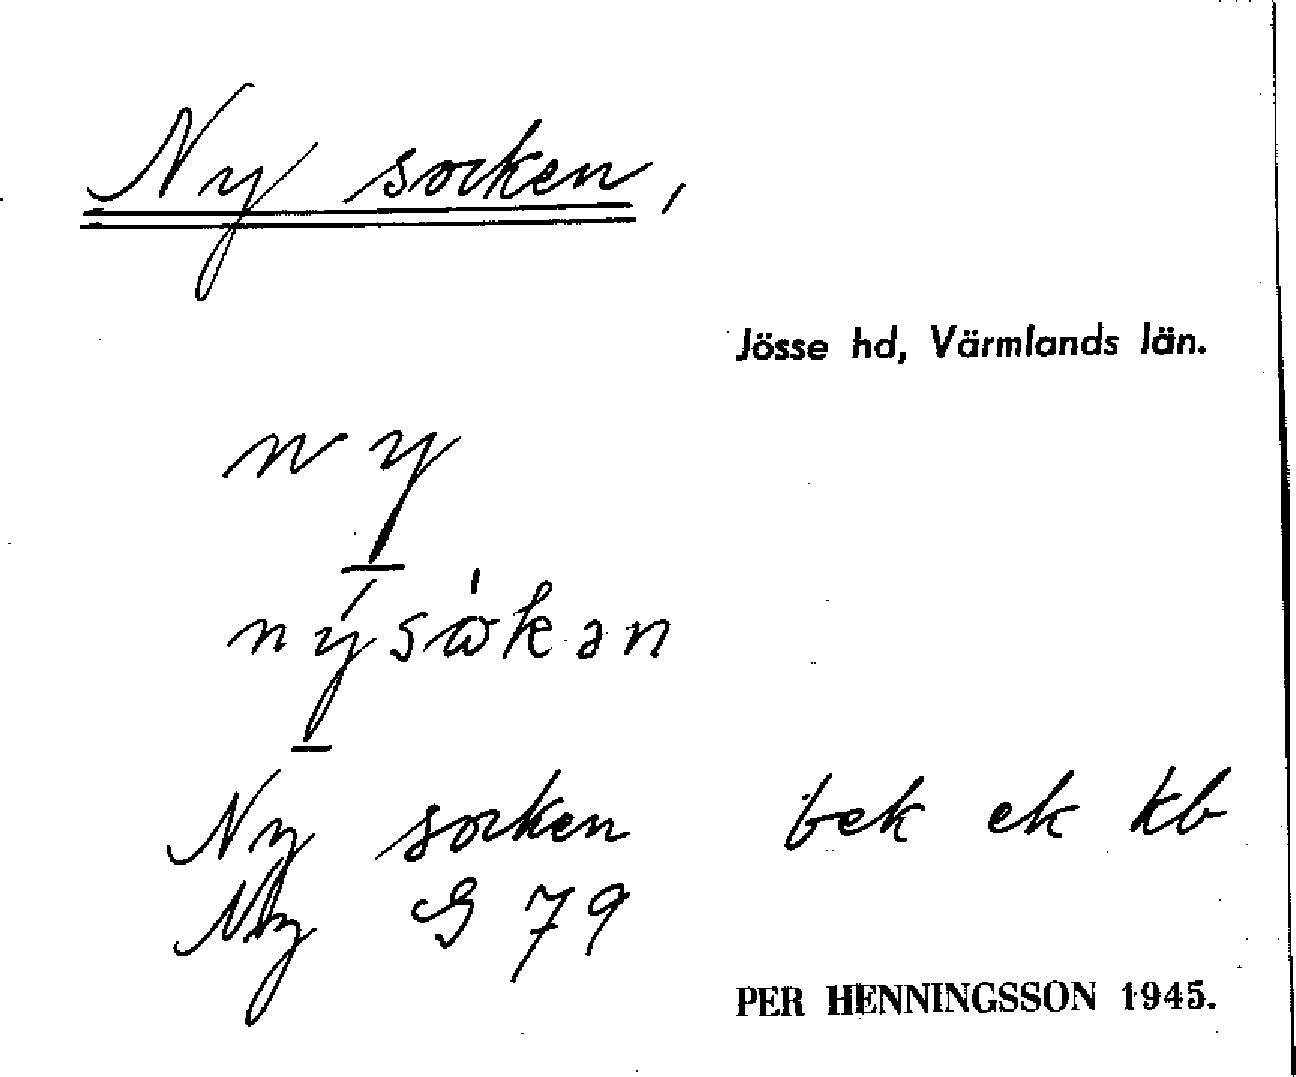 Ny socken,
Jösse hd, Värmlands län.
ny
Ny socken bek ek kb
Ny S 79
PER HENNINGSSON 1945.